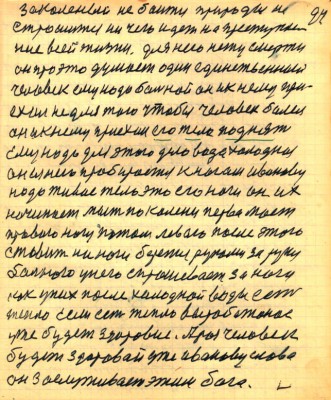 закаленый не боится природы не 97
страшится ни чего идет на преступле-
ние всей жизни. для него нету смерти
он про это думает один единственный
человек ему надо больной он их нему при-
ехал не для того чтобы человек болел
он их нему приехал его тело поднять
Ему надо для этого дело вода холодная
он ыло пробирается к ногам Иванову
надо живое тело это его ноги он их
начинает мыть по колени первая моет
правого ногу потом левого после этого
ставит на ноги берет руками за руку
больного у него спрашевает за ногу
как у них после холодной воды есть
тепло Если есть тепло выработоное
уже будет здоровие. Проз человек
будет здоровай уже Иванову слова
он заслуживает этим бога.